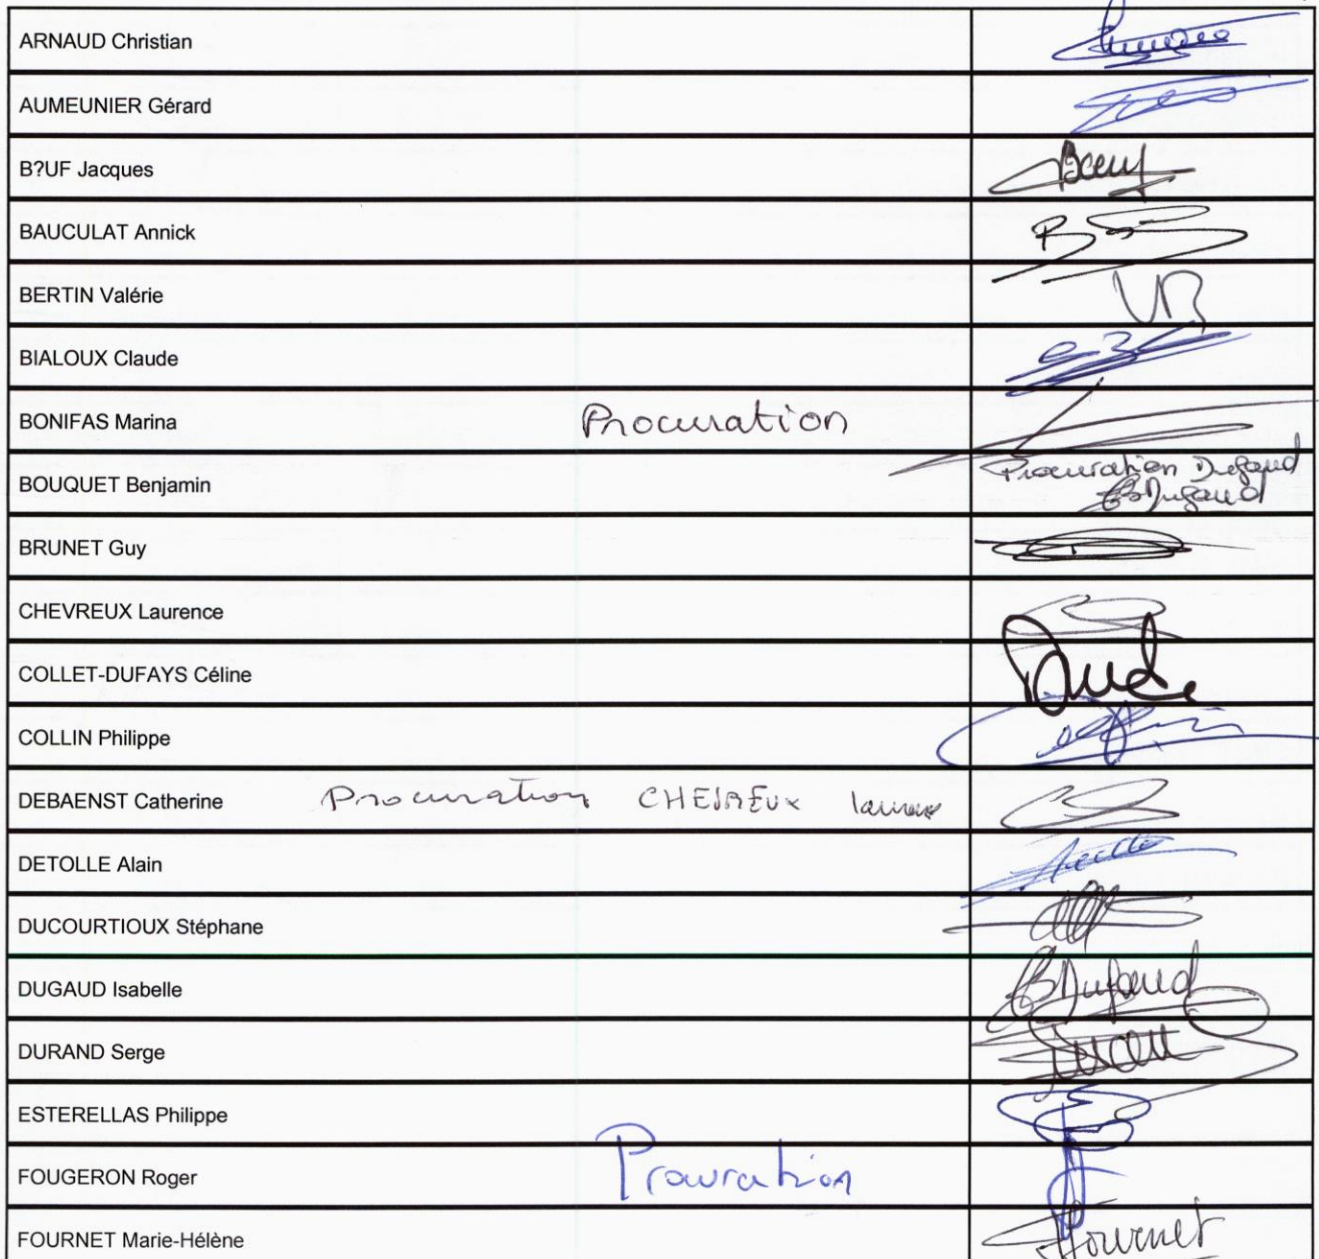 ARNAUD Christian
AUMEUNIER Gérard
B?UF Jacques
Boeuf
BAUCULAT Annick
BERTIN Valérie
VB
BIALOUX Claude
BONIFAS Marina Procuration
BOUQUET Benjamin Procuration Dugaud
Dugaud
BRUNET Guy
CHEVREUX Laurence
COLLET-DUFAYS Céline
COLLIN Philippe
DEBAENST Catherine Procuration CHEVREUX
DETOLLE Alain
DUCOURTIOUX Stéphane
DUGAUD Isabelle Dugaud
DURAND Serge
ESTERELLAS Philippe
FOUGERON Roger Procuration
FOURNET Marie-Hélène Fournet